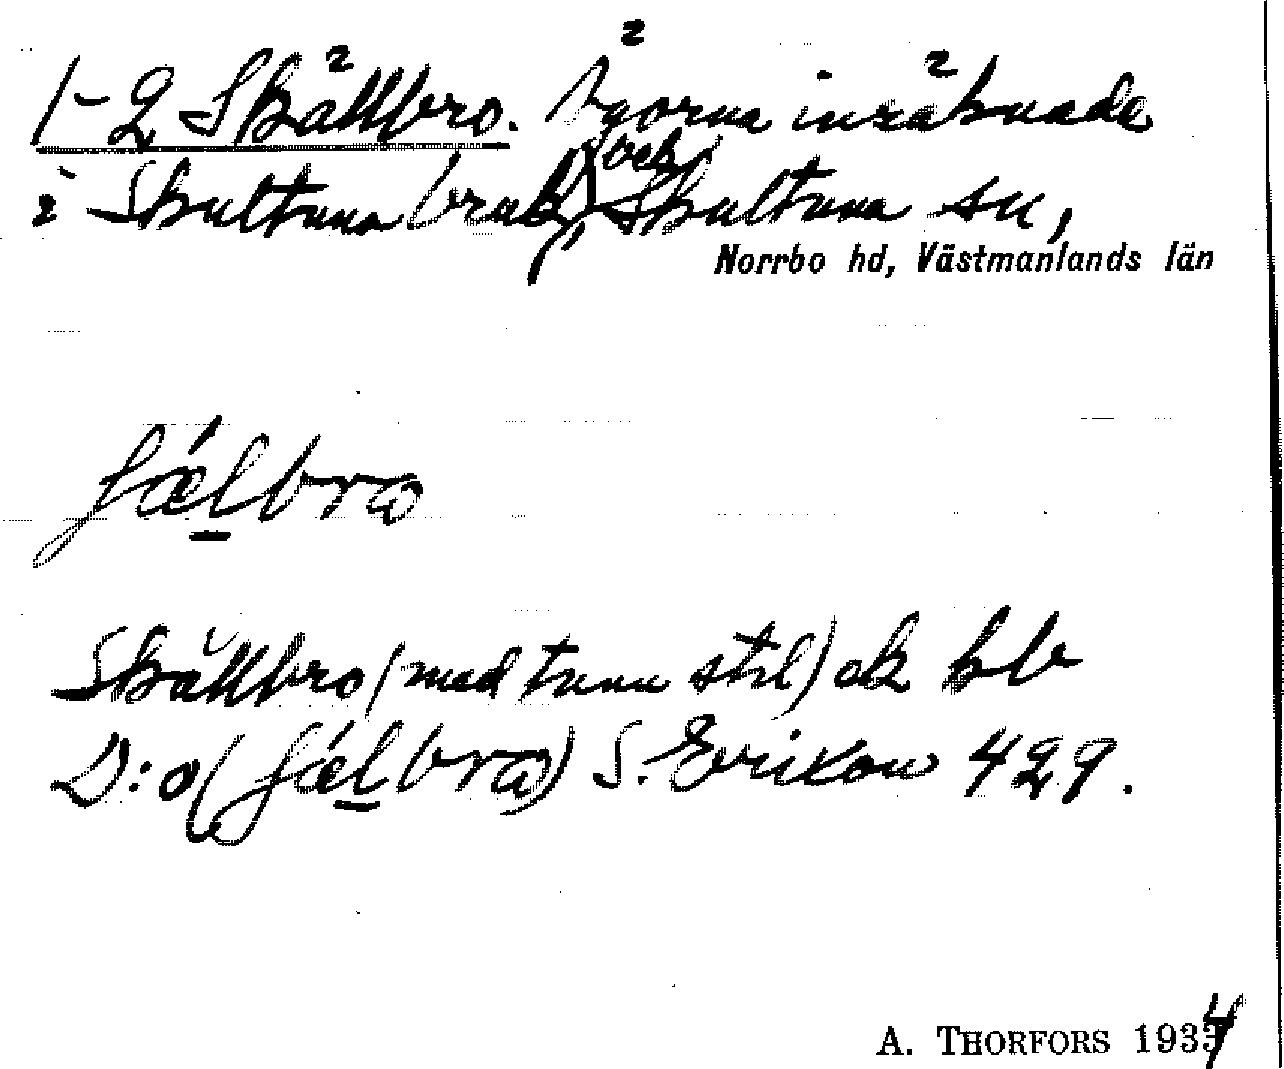 1-2 Skällbro. Ägorna inräknade
i Skultuna bruk, och Skultuna sn,
Norrbo hd, Västmanlands län
ʃǽlbro
Skällbro (med tunn stil) ek kb
D:o (ʃǽlbro) S. Erixon 429.
A. THORFORS 1934